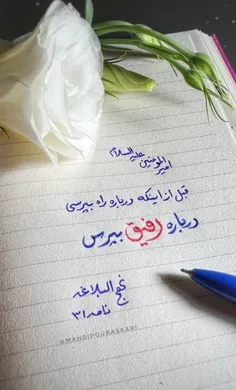 امیرالمومنین علیه السلام
قبل از اینکه درباره راه بپرسی
درباره رفیق بپرس
نهج البلاغه
نامه ۳۱
@MAHDIPOURASKARI